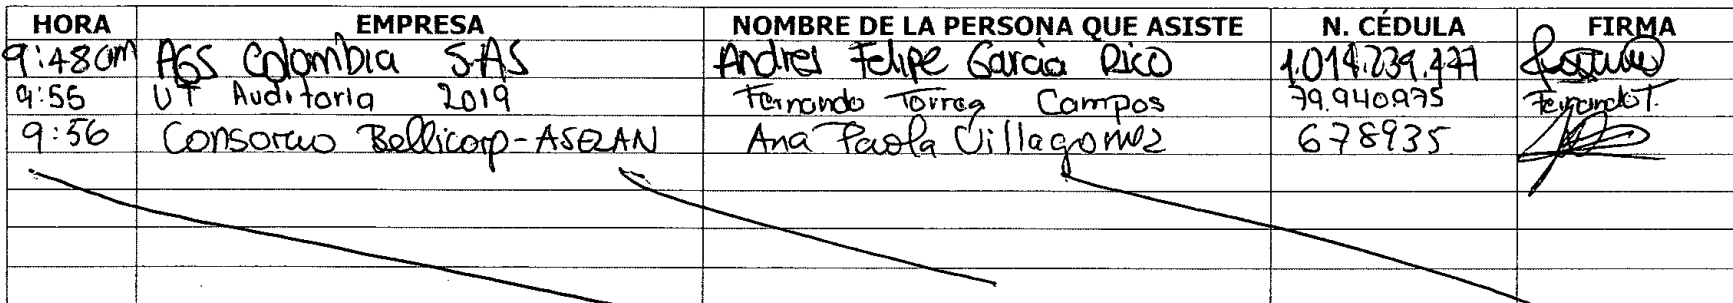 HORA EMPRESA NOMBRE DE LA PERSONA QUE ASISTE N. CÉDULA FIRMA
9:48am AGS Colombia S.A.S Andres Felipe García Rico 1.014.239.477
9:55 UT Auditoria 2019 Fernando Torres Campos 79.940975 Fernando T.
9:56 Consorcio Bellicorp-ASEZAN Ana Paola Villagomez 678935